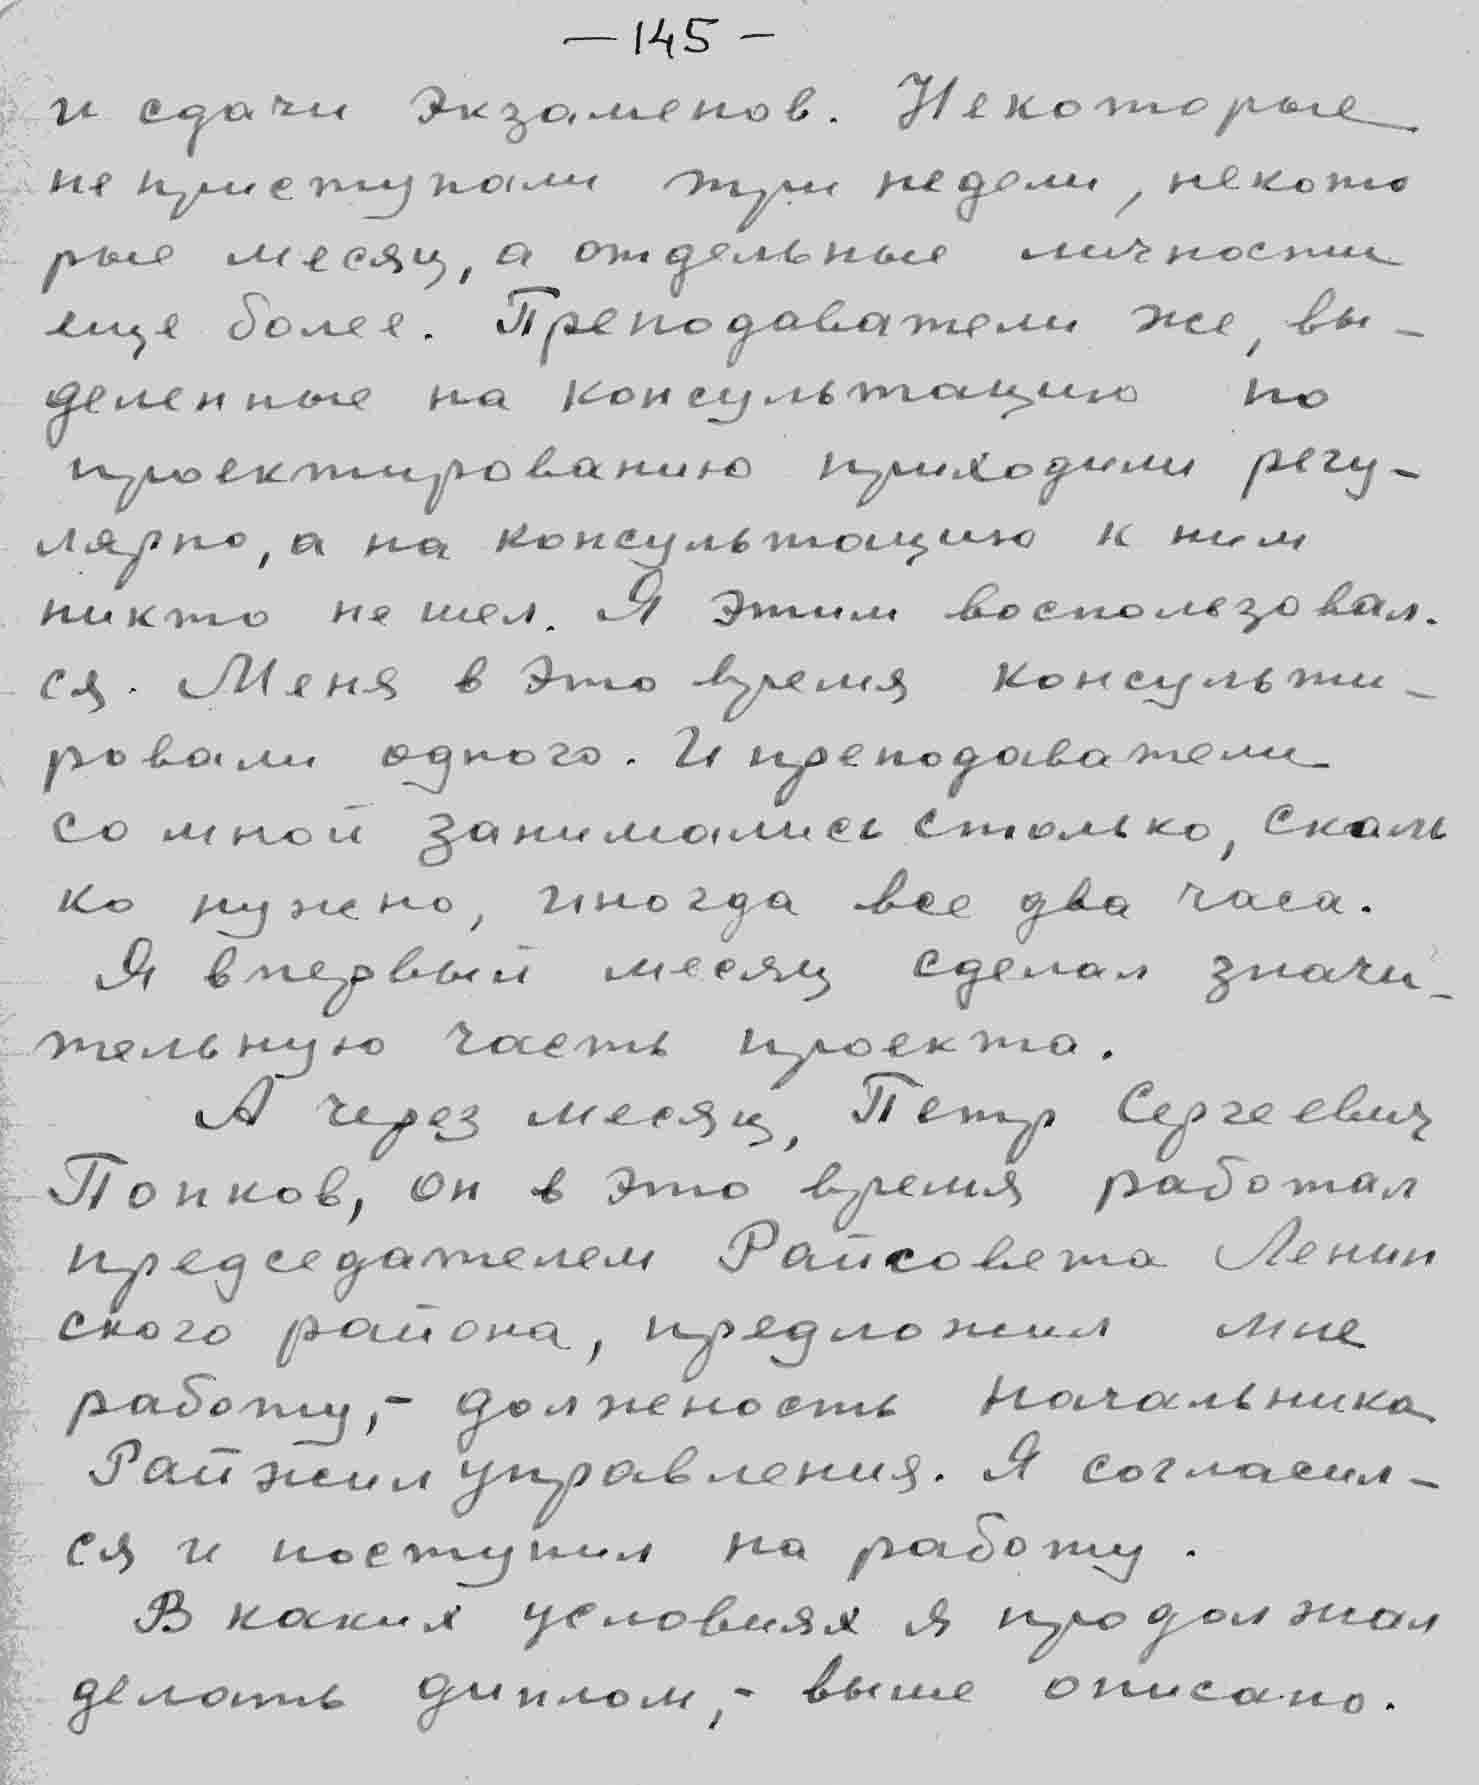 — 145 —
и сдачи экзаменов. Некоторые
не приступали три недели, некото
рые месяц, а отдельные личности
еще более. Преподаватели же, вы-
деленные на консультацию по
проектированию приходили регу-
лярно, а на консультацию к ним
никто не шел. Я этим воспользовал.
ся. Меня в это время консульти-
ровали одного. И преподаватели
со мной занимались столько, сколь
ко нужно, иногда все два часа.
Я в первый месяц сделал значи-
тельную часть проекта.
А через месяц, Петр Сергеевич
Попков, он в это время работал
председателем Райсовета Ленин
ского района, предложил мне
работу,- долженость начальника
Райжилуправления. Я согласил-
ся и поступил на работу.
В каких условиях я продолжал
делать диплом,- выше описано.